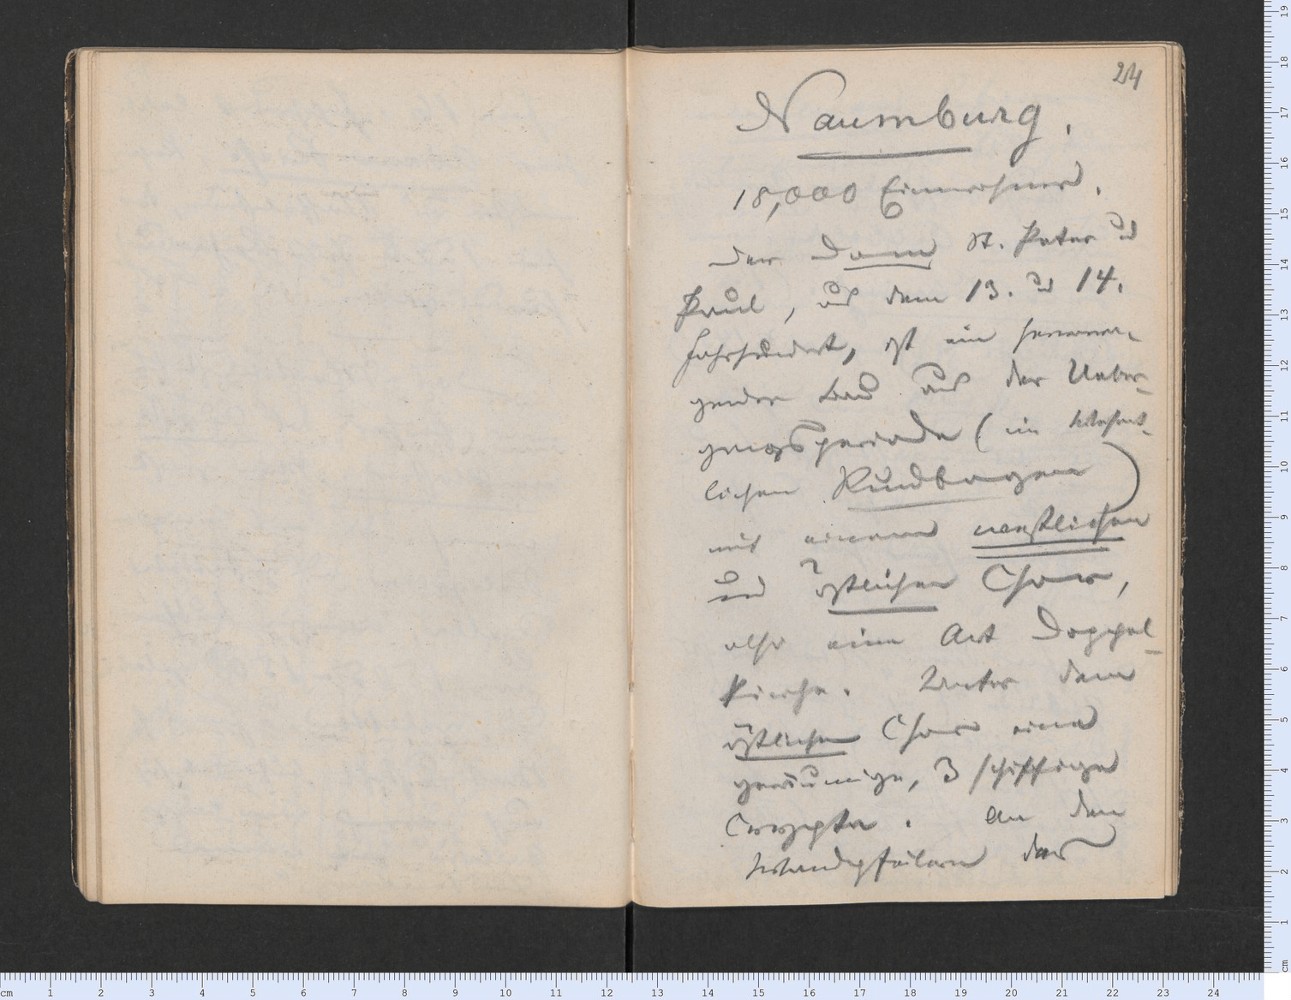 24
Naumburg.
18,000 Einwohner.
Der Dom St. Peter u
Paul, aus dem 13. u 14.
Jahrhundert, ist ein hervorra-
gender Bau aus der Ueber-
gangsperiode (im Wesent-
lichen Rundbogen)
mit einem westlichen
und östlichen Chor,
also eine Art Doppel-
kirche. Unter dem
östlichen Chor eine
geräumige, 3 schiffige
Crypta. An den
Wandpfeilern des